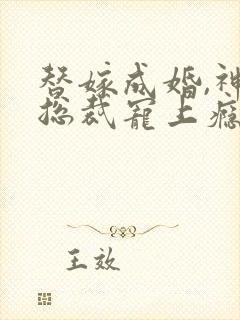 替嫁成婚,神
总裁宠上瘾
王效